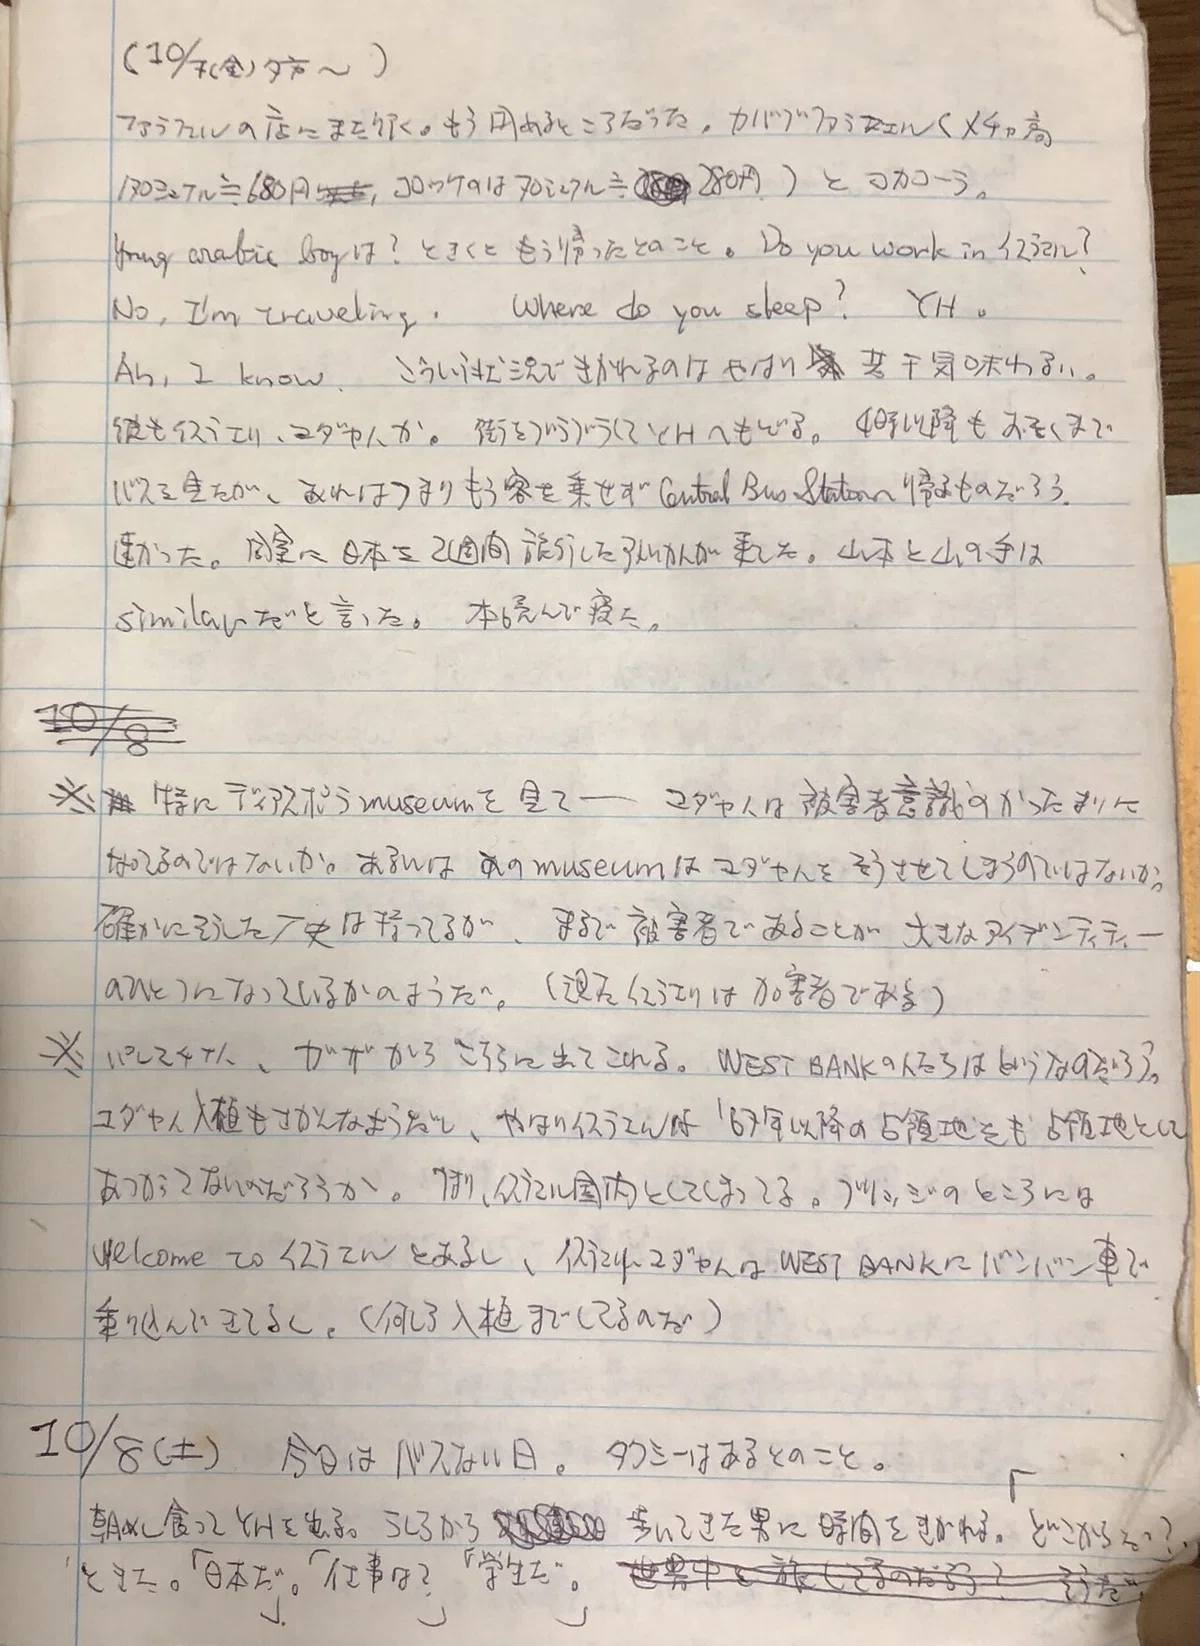 (10/7(金)夕方〜)
ファラフェルの店にまた行く。もう閉めるところだった。カバブファラフェル(メチャ高
170シェケル≒680円、コロッケのは70シェケル≒280円)とコカコーラ。
Young arabic boyは?ときくともう帰ったとのこと。Do you work in イスラエル?
No, I'm traveling. Where do you sleep? YH。
Ah, I know. こういう状況できかれるのはやはり若干気味わるい。
彼もイスラエリ、ユダヤ人か。街をぶらぶらしてYHへもどる。4時以降もおそくまで
バスを見たが、あれはつまりもう客を乗せずCentral Bus Stationへ帰るものだろう。
速かった。同室に日本を2週間旅行したアメリカ人が来てた。山本と山の手は
similarだと言った。本読んで寝た。
10/8
※ 特にディアスポラmuseumを見て── ユダヤ人は被害者意識のかたまりに
なってるのではないか。あるいはあのmuseumはユダヤ人をそうさせてしまうのではないか。
確かにそうした歴史は持ってるが、まるで被害者であることが大きなアイデンティティー
のひとつになっているかのようだ。(現在イスラエリは加害者である)
※ パレスチナ人、ガザからこちらに出てこれる。WEST BANKの人たちはどうなのだろう?。
ユダヤ人入植もさかんなようだし、やはりイスラエルは'67年以降の占領地をも占領地として
あつかってないのだろうか。つまり、イスラエル国内としてしまってる。ブリッジのところには
Welcome to イスラエルとあるし、イスラエル・ユダヤ人はWEST BANKにバンバン車で
乗り込んできてるし。(何しろ入植までしてるのだ)
10/8(土) 今日はバスない日。タクシーはあるとのこと。
朝めし食ってYHを出る。うしろから歩いてきた男に時間をきかれる。「どこからだ?」
ときた。「日本だ」。「仕事は?」「学生だ」。世界中を旅してるのだろう? そうだ。